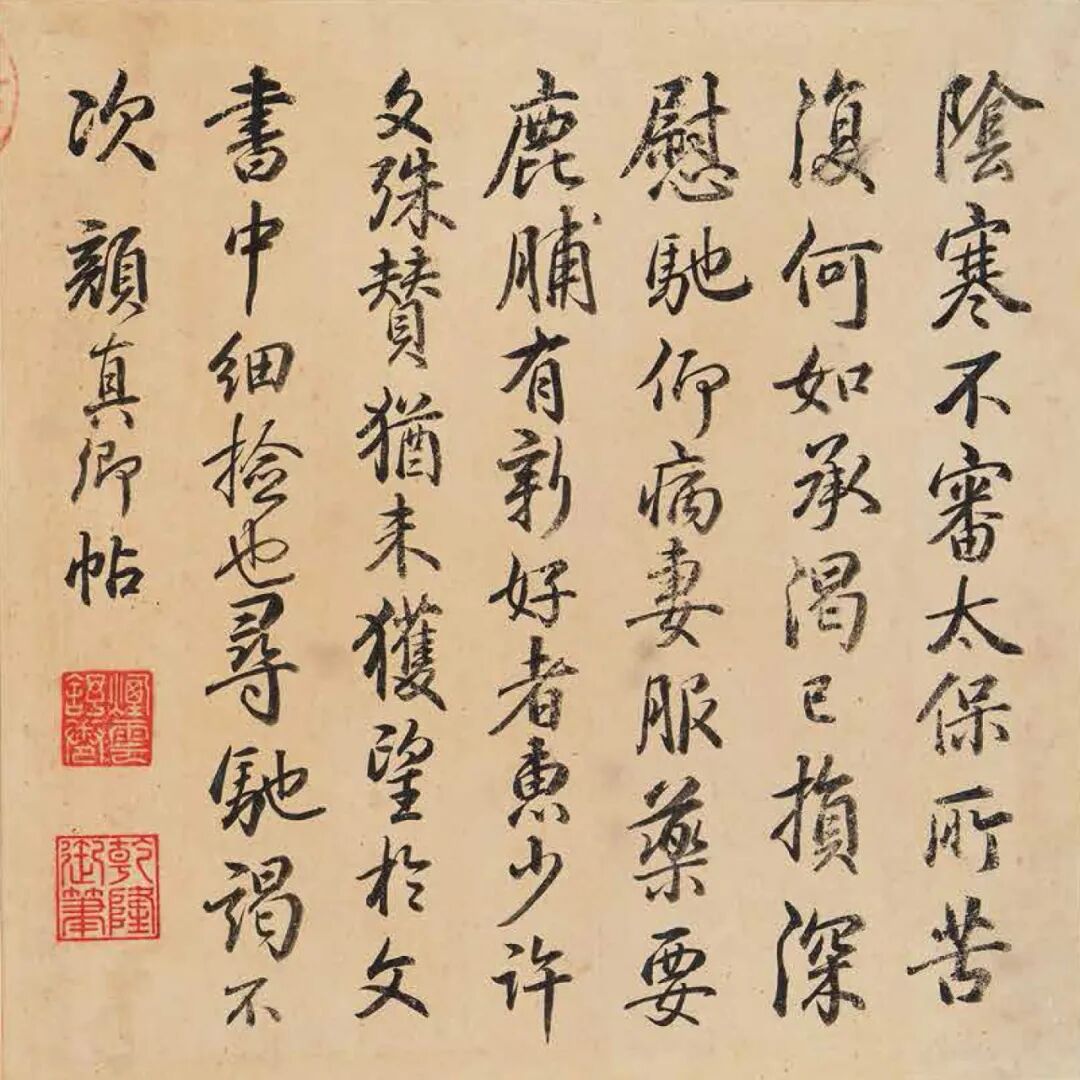 陰寒不審太保所苦
復何如承渴已損深
慰馳仰病妻服藥要
鹿脯有新好者惠少許
文殊贊猶未獲望於文
書中細撿也尋馳謁不
次顏真卿帖
乾隆
御筆